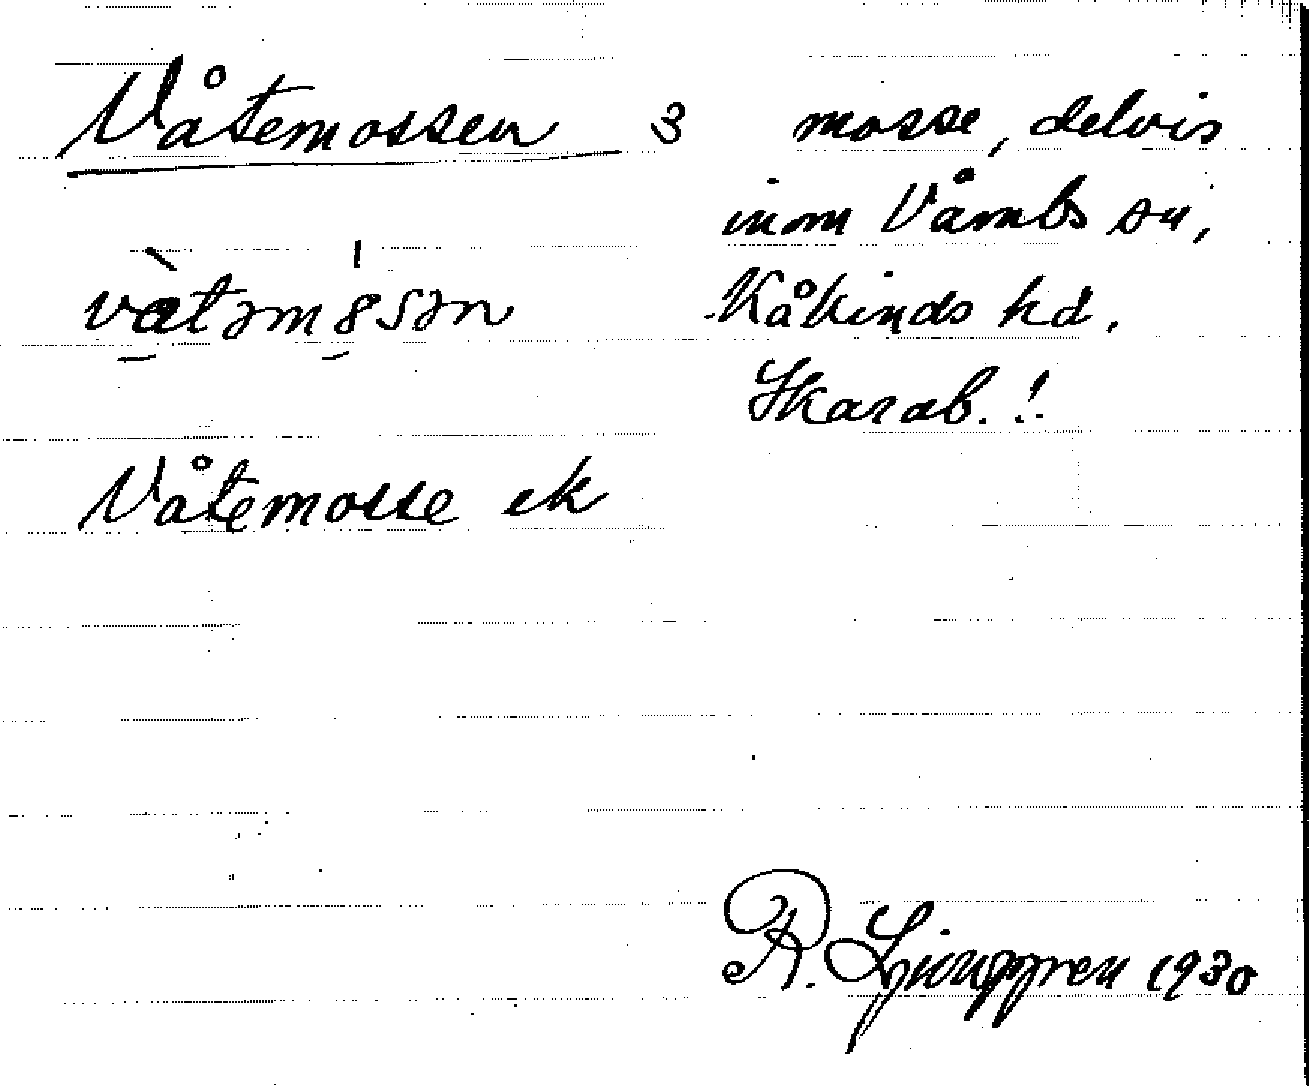 Våtemossen 3
vàtəmꞩsən
Våtemosse ek
mosse, delvis
inom Våmbs sn,
Kåkinds hd.
Skarab. !
R. Ljunggren 1930